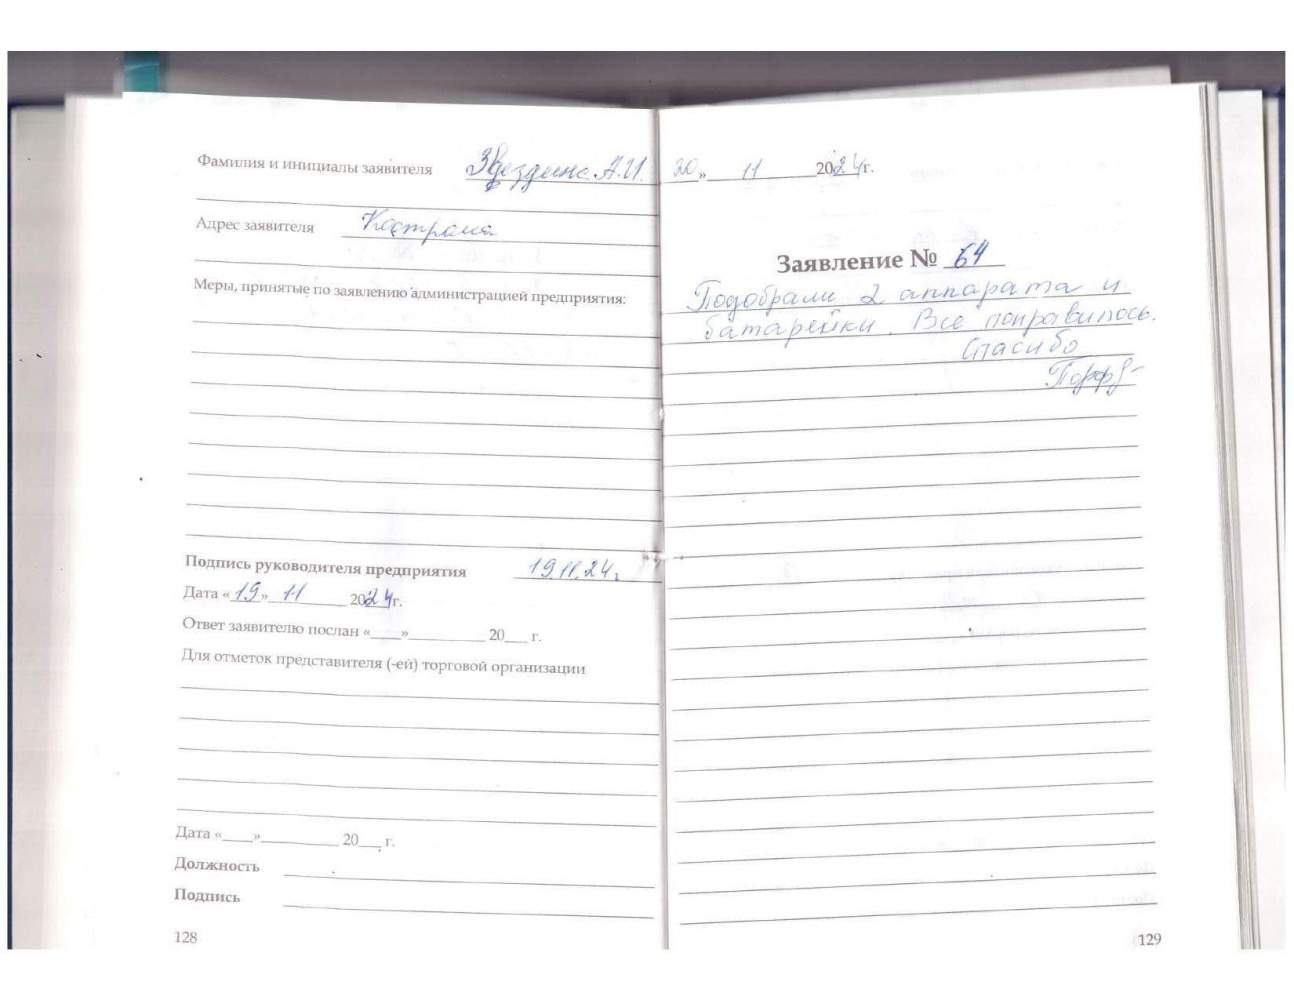 Фамилия и инициалы заявителя Звездина А.И.
Адрес заявителя Кострома
Меры, принятые по заявлению администрацией предприятия:
Подпись руководителя предприятия 19.11.24г.
Дата «19» 11 2024г.
Ответ заявителю послан «____»__________ 20___ г.
Для отметок представителя (-ей) торговой организации
Дата «____»__________ 20___ г.
Должность
Подпись
128
20 » 11 2024г.
Заявление № 64
Подобрали 2 аппарата и
батарейки. Все понравилось.
Спасибо
129